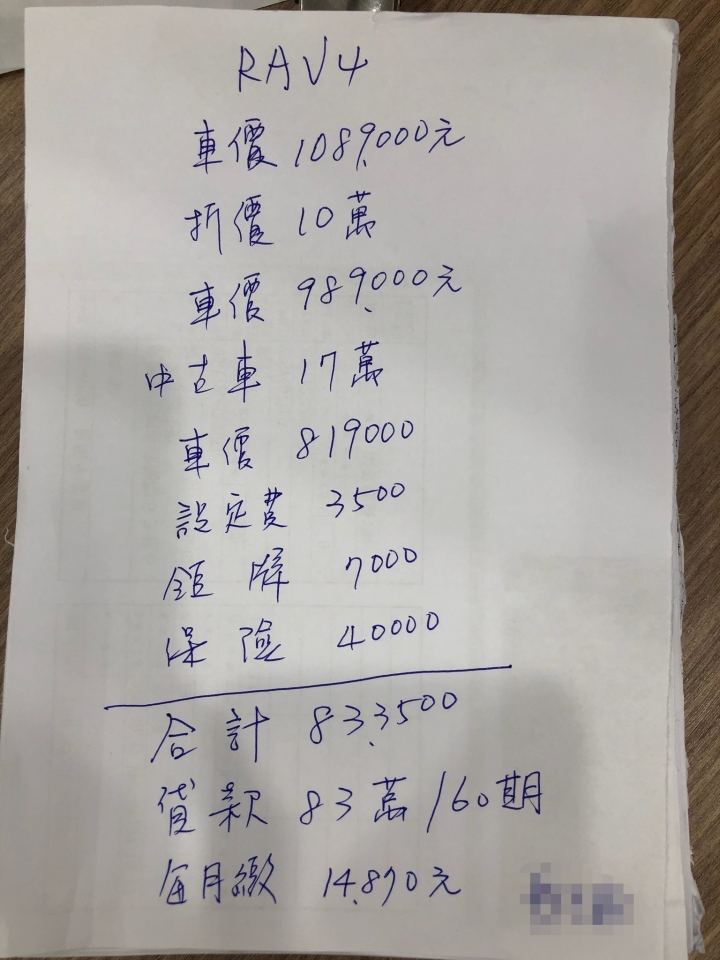 RAV4
車價 1089,000元
折價 10萬
車價 989,000元
中古車 17萬
車價 819000
設定費 3500
領牌 7000
保險 40000
合計 83,3500
貸款 83萬/60期
每月繳 14,870元